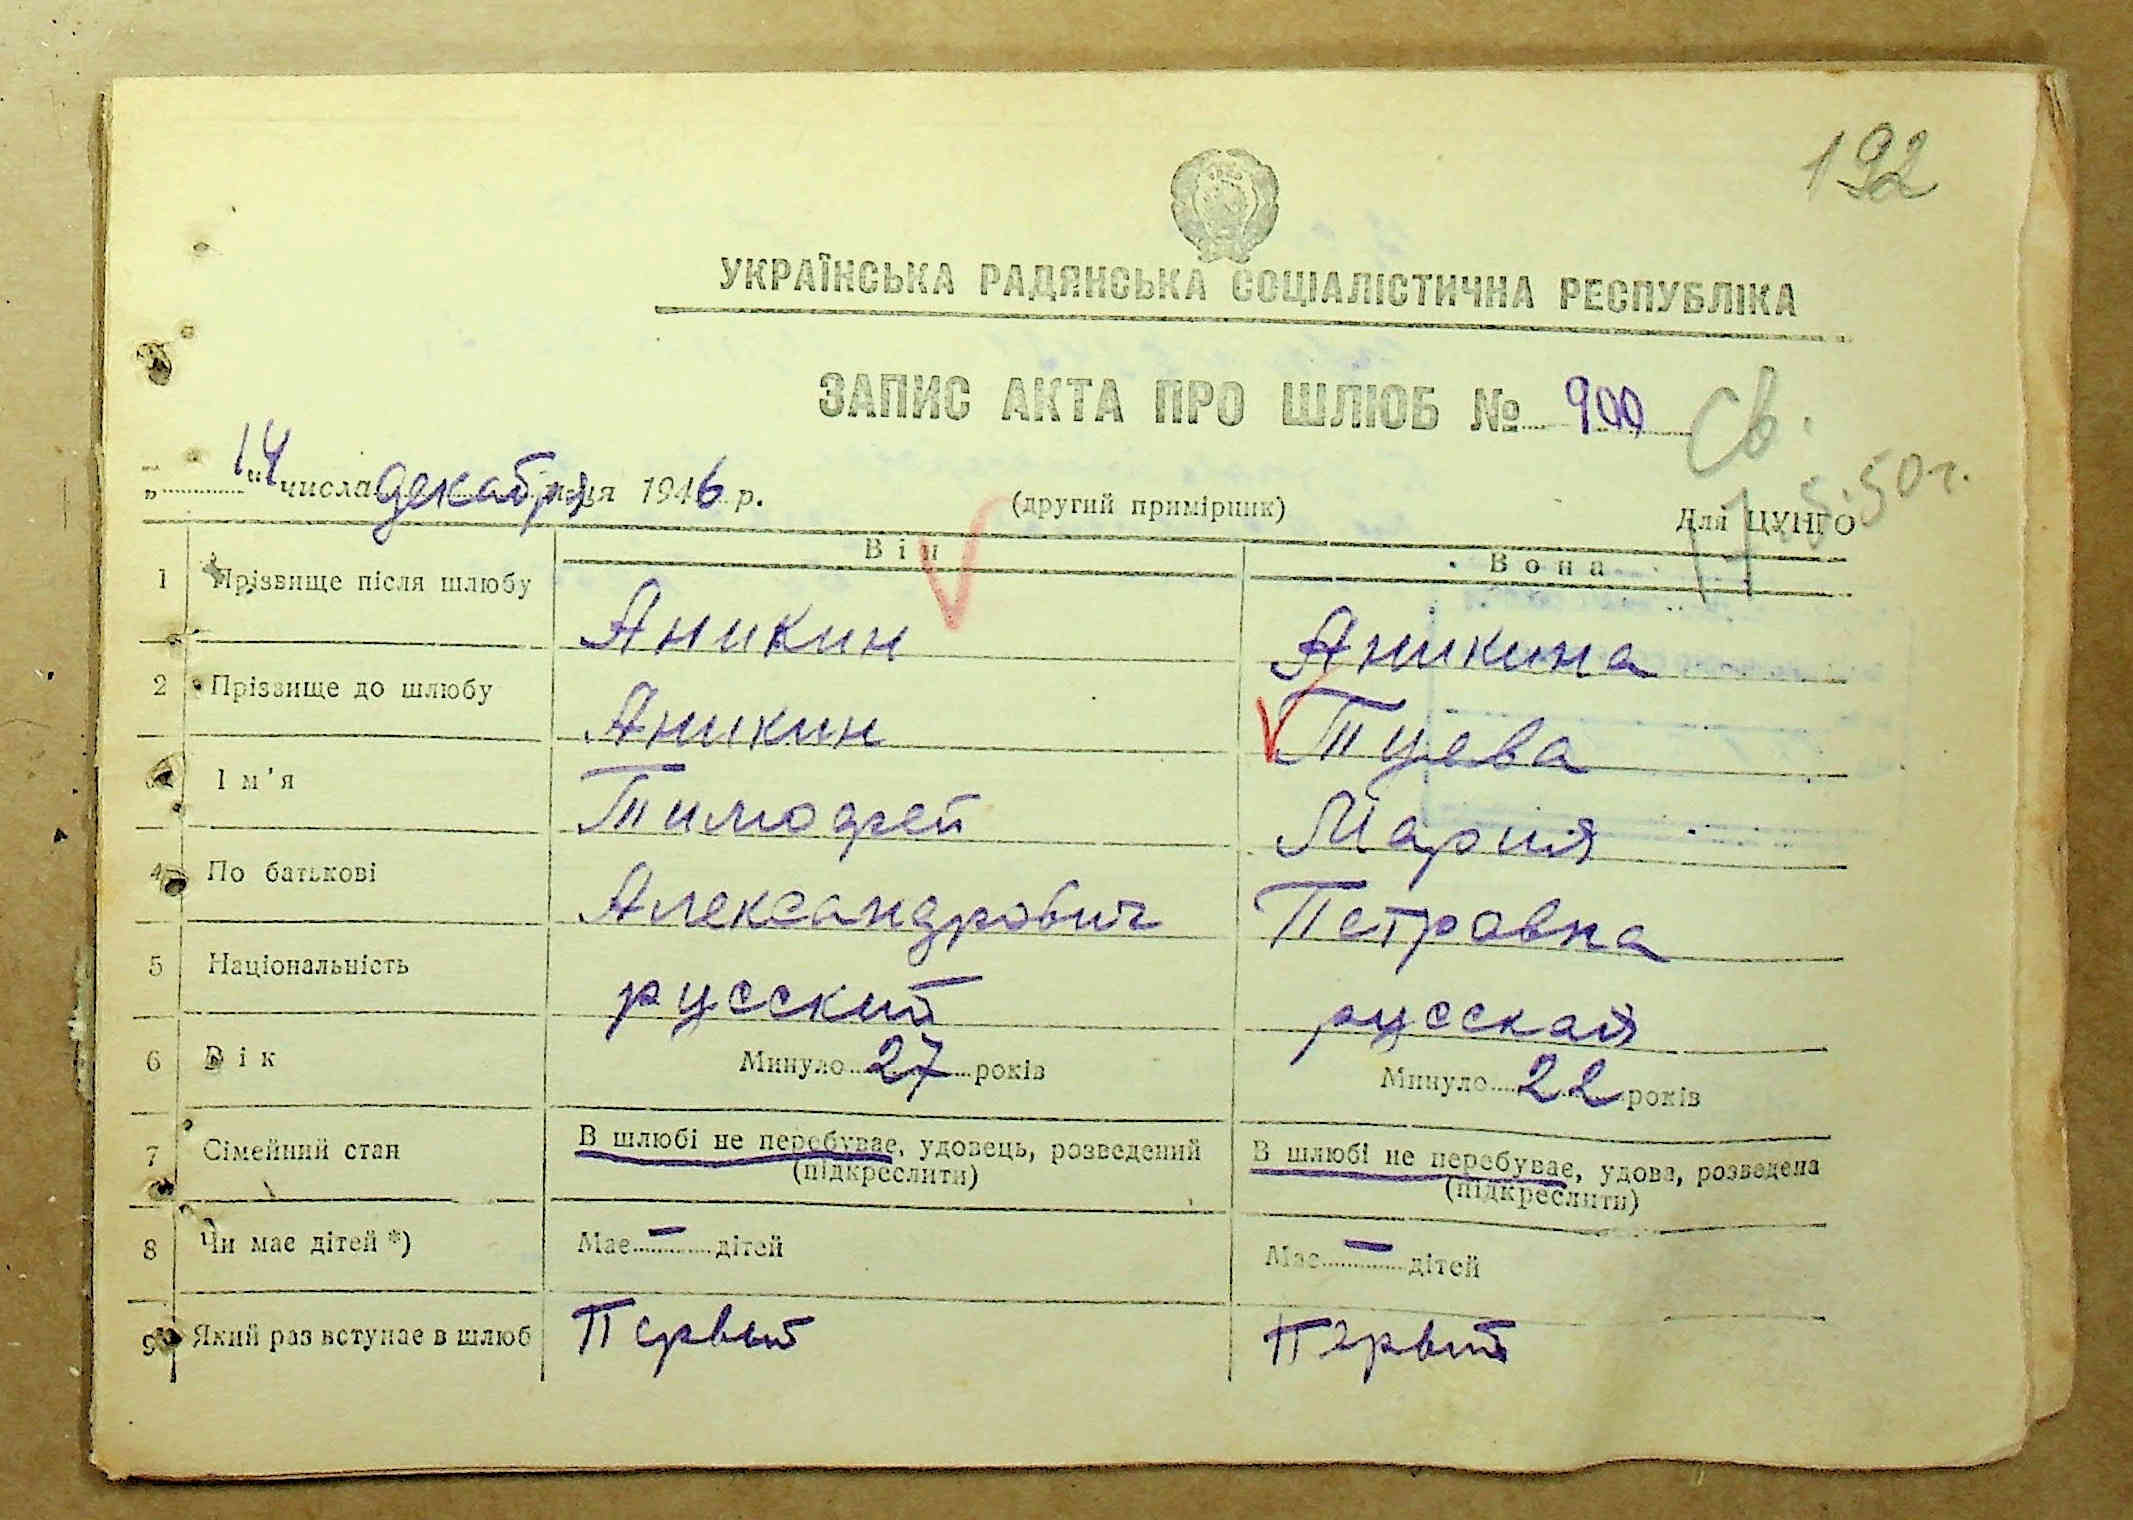 192
УКРАЇНСЬКА РАДЯНСЬКА СОЦІАЛІСТИЧНА РЕСПУБЛІКА
ЗАПИС АКТА ПРО ШЛЮБ № 900
Св.
„14“ числа декабря м-ця 1946 р.
(другий примірник)
Для ЦУНГО
5.50 г.
Він Вона
1 Прізвище після шлюбу Аникин Аникина
2 Прізвище до шлюбу Аникин Туева
3 Ім'я Тимофей Мария
4 По батькові Александрович Петровна
5 Національність русский русская
6 Вік Минуло 27 років Минуло 22 років
7 Сімейний стан В шлюбі не перебуває, удовець, розведений (підкреслити) В шлюбі не перебуває, удова, розведена (підкреслити)
8 Чи має дітей *) Має — дітей Має — дітей
9 Який раз вступає в шлюб Первый Первый